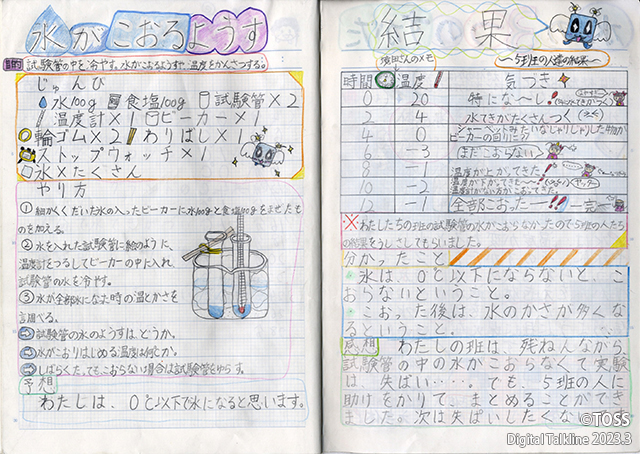 水がこおるようす
目的 試験管の中を冷やす。水がこおるようすや、温度をかんさつする。
じゅんび
水100g 食塩100g 試験管×2
温度計×1 ビーカー×1
輪ゴム×2 わりばし×1
ストップウォッチ×1
氷×たくさん
やり方
① 細かくくだいた氷の入ったビーカーに水100gと食塩100gをまぜたも
のを加える。
② 水を入れた試験管に絵のように、
温度計をつるしてビーカーの中に入れ
試験管の水を冷やす。
③ 水が全部氷になった時の温とかさを
調べる。
試験管の水のようすは、どうか。
水がこおりはじめる温度は何どか。
しばらくたっても、こおらない場合は試験管をゆらす。
予想
わたしは、0℃以下で氷になると思います。
結果
~5班の人達の結果~
時間 温度 気づき
0 20 特にな~し!
2 4 水てきがたくさんつく
4 0
6 -3 まだこおらない
8 -1 温度が上がってきた
10 -2
12 -1 全部こおったー!!
※わたしたちの班の試験管の水がこおらなかったので5班の人たち
の結果をうしさしてもらいました。
分かったこと
・氷は、0℃以下にならないと、こ
おらないということ。
・こおった後は、水のかさが多くな
るということ。
感想 わたしの班は、残ねんながら
試験管の中の水がこおらなくて実験
は、失ぱい····。でも、5班の人に
助けをかりて、まとめることができ
ました。次は失ぱいしたくな
©TOSS
Digital Talkline 2023.3